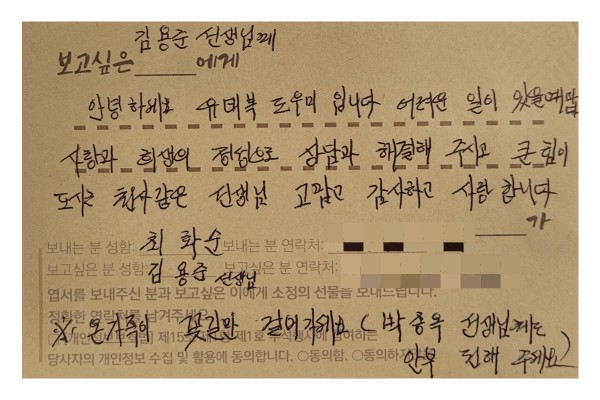 김용준 선생님께
보고싶은 에게
안녕하세요 유대북 도우미 입니다 어려운 일이 있을때 맘
사랑과 희생의 정성으로 상담과 해결해 주시고 큰 힘이
도시는 천사같은 선생님 고맙고 감사하고 사랑 합니다
가
보내는 분 성함: 최화순 보내는 분 연락처:
보고싶은 분 성함: 김용준 선생님 보고싶은 분 연락처:
엽서를 보내주신 분과 보고싶은 이에게 소정의 선물을 보내드립니다.
정확한 연락처를 남겨주세요
※ 온가족이 꽃길만 걸어가세요 (박종옥 선생님께도
제15조 제1호
당사자의 개인정보 수집 및 활용에 동의합니다. ○동의함. ○동의하지
안부 전해 주세요)